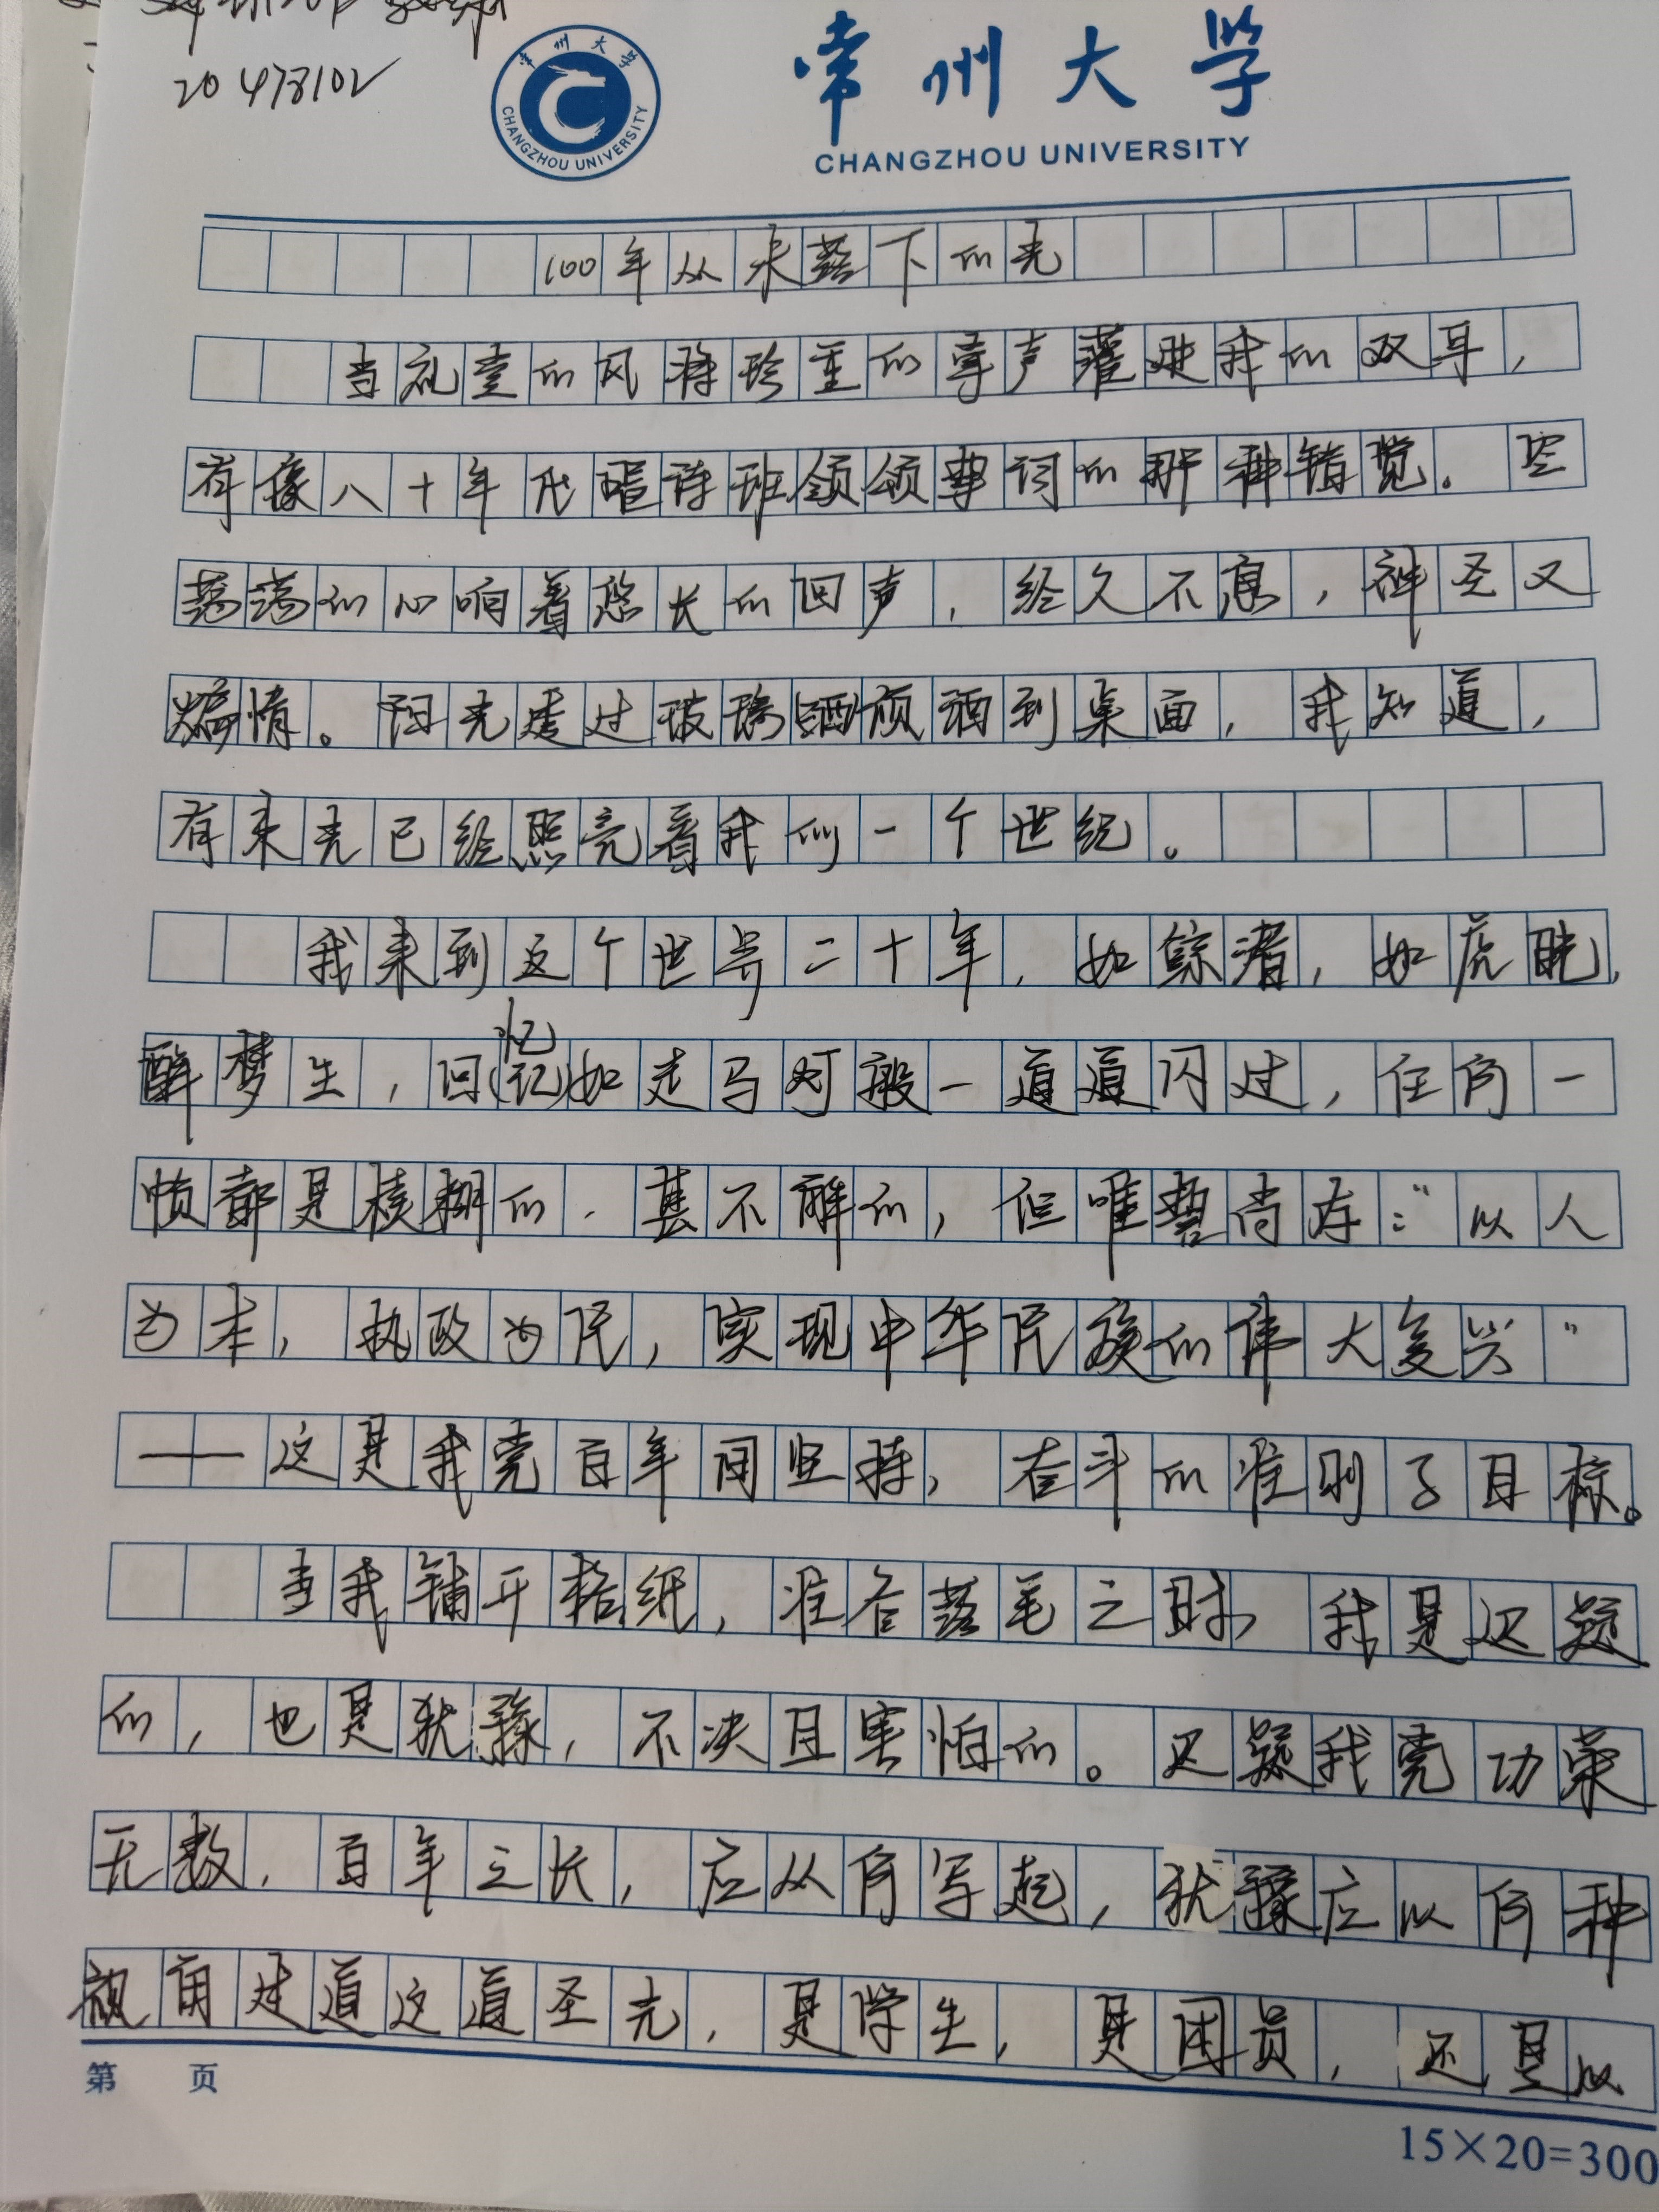 20478102
常州大学
CHANGZHOU UNIVERSITY
常州大学
CHANGZHOU UNIVERSITY
100年从未落下的光
当礼堂的风将珍重的字声灌进我的双耳，
有像八十年代唱诗班领颂尊词的那种错觉。空
荡荡的心响着悠长的回声，经久不息，神圣又
煽情。阳光透过玻璃倾洒到桌面，我知道，
有束光已经照亮着我们一个世纪。
我来到这个世界二十年，如饿渚，如虎眈，
醉梦生，回(记)忆如走马灯般一道道闪过，任何一
帧都是模糊的，甚不解的，但唯誓尚存：“以人
为本，执政为民，实现中华民族的伟大复兴”
——这是我党百年间坚持，奋斗的准则与目标。
当我铺开格纸，准备落笔之时，我是迟疑
的，也是犹豫，不决且害怕的。迟疑我党功荣
无数，百年之长，应从何写起，犹豫应以何种
视角走道这道圣光，是学生，是团员，还是以
第 页
15×20=300